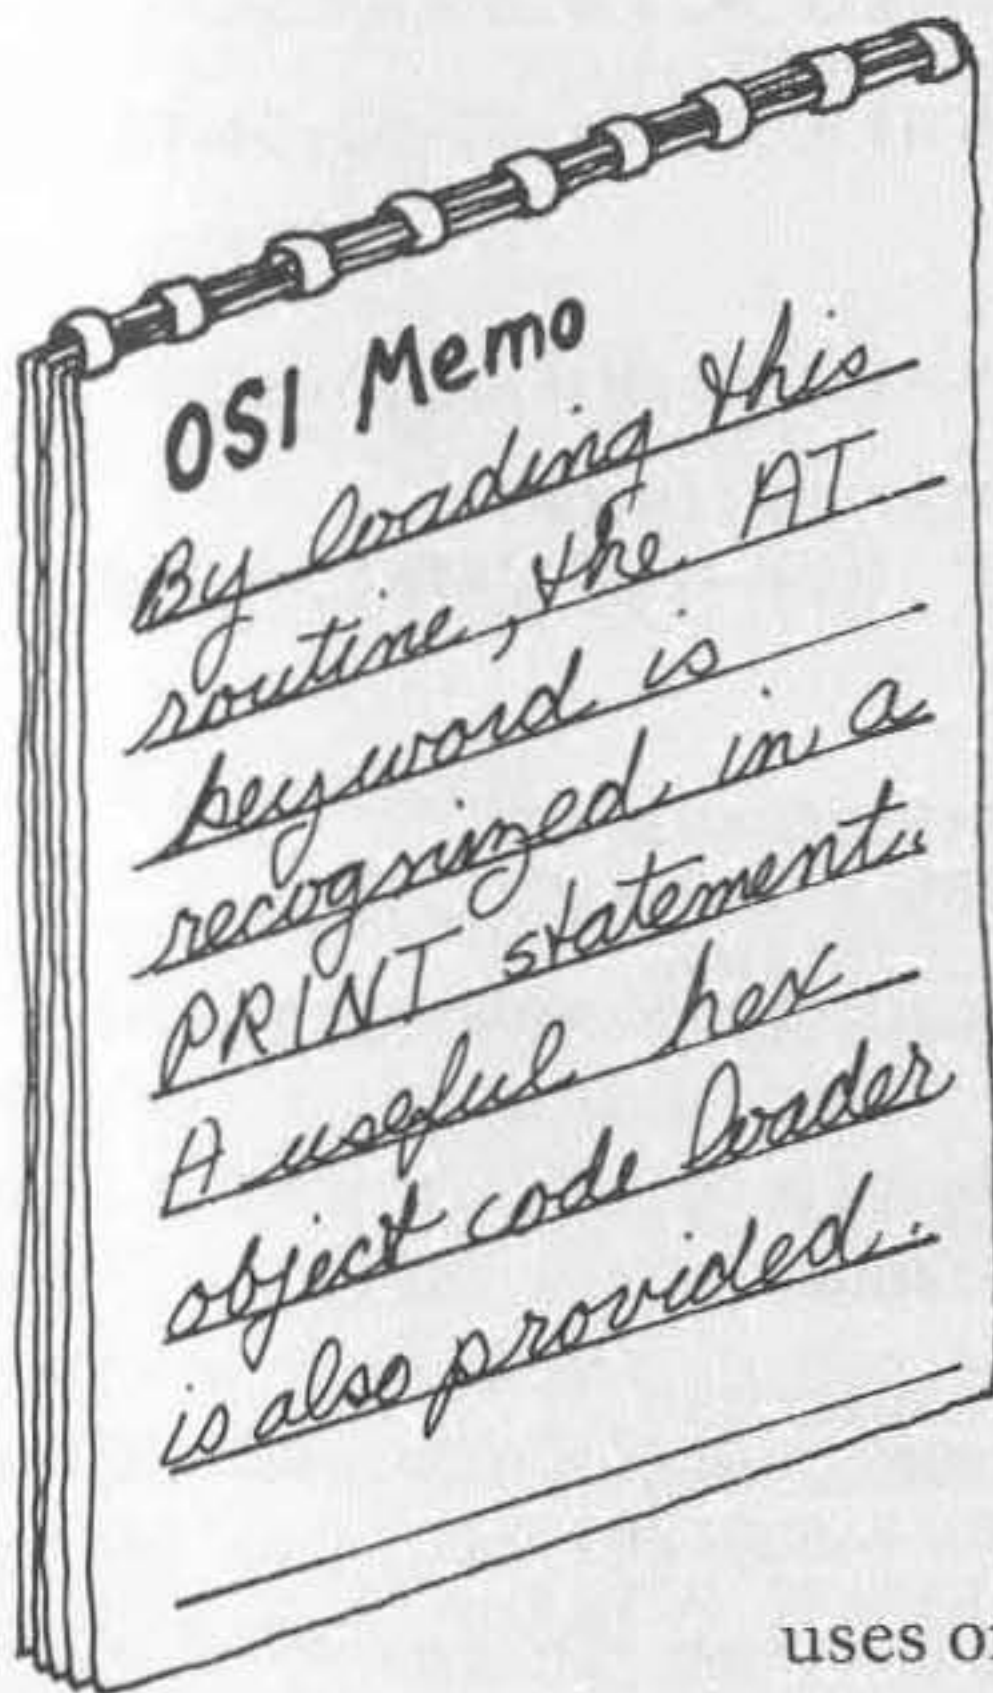 OSI Memo
By loading this
routine, the AT
keyword is
recognized in a
PRINT statement.
A useful hex
object code loader
is also provided.
uses